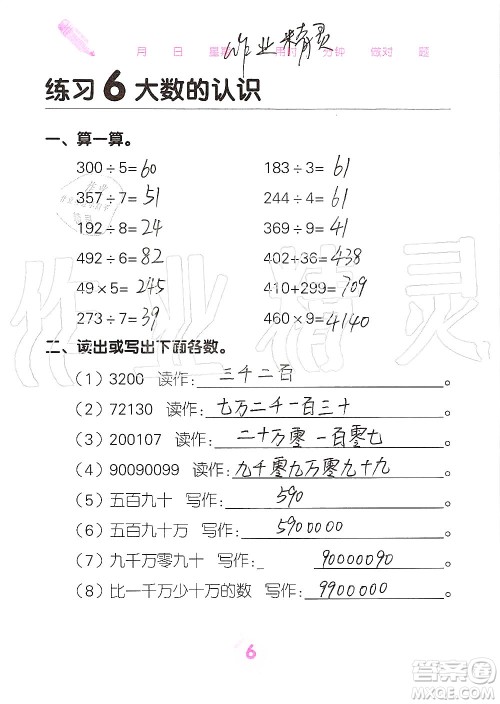 月 日 星期 用时 分钟 做对 题
作业精灵
练习6 大数的认识
一、算一算。
300÷5=60 183÷3=61
357÷7=51 244÷4=61
192÷8=24 369÷9=41
492÷6=82 402+36=438
49×5=245 410+299=709
273÷7=39 460×9=4140
二、读出或写出下面各数。
(1) 3200 读作:三千二百。
(2) 72130 读作:七万二千一百三十。
(3) 200107 读作:二十万零一百零七。
(4) 90090099 读作:九千零九万零九十九。
(5) 五百九十 写作:590。
(6) 五百九十万 写作:5900000。
(7) 九千万零九十 写作:90000090。
(8) 比一千万少十万的数 写作:9900000。
6
作业精灵
答案圈
MXQE.COM